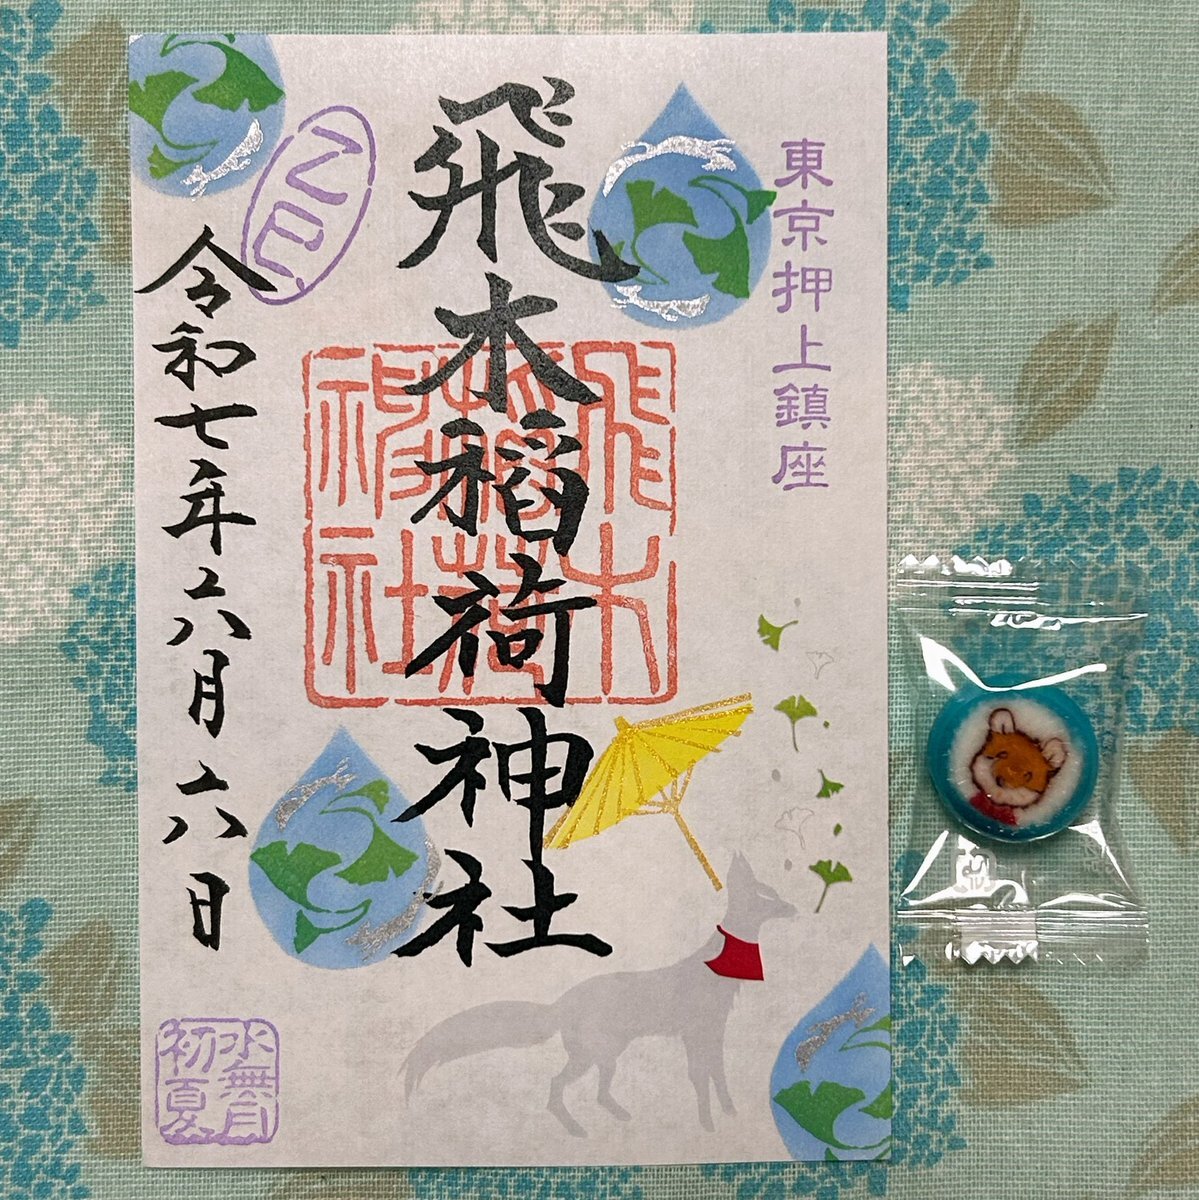 東京押上鎮座
飛木稲荷神社
飛木
稲荷
神社
乙巳
令和七年六月六日
水無月
初夏